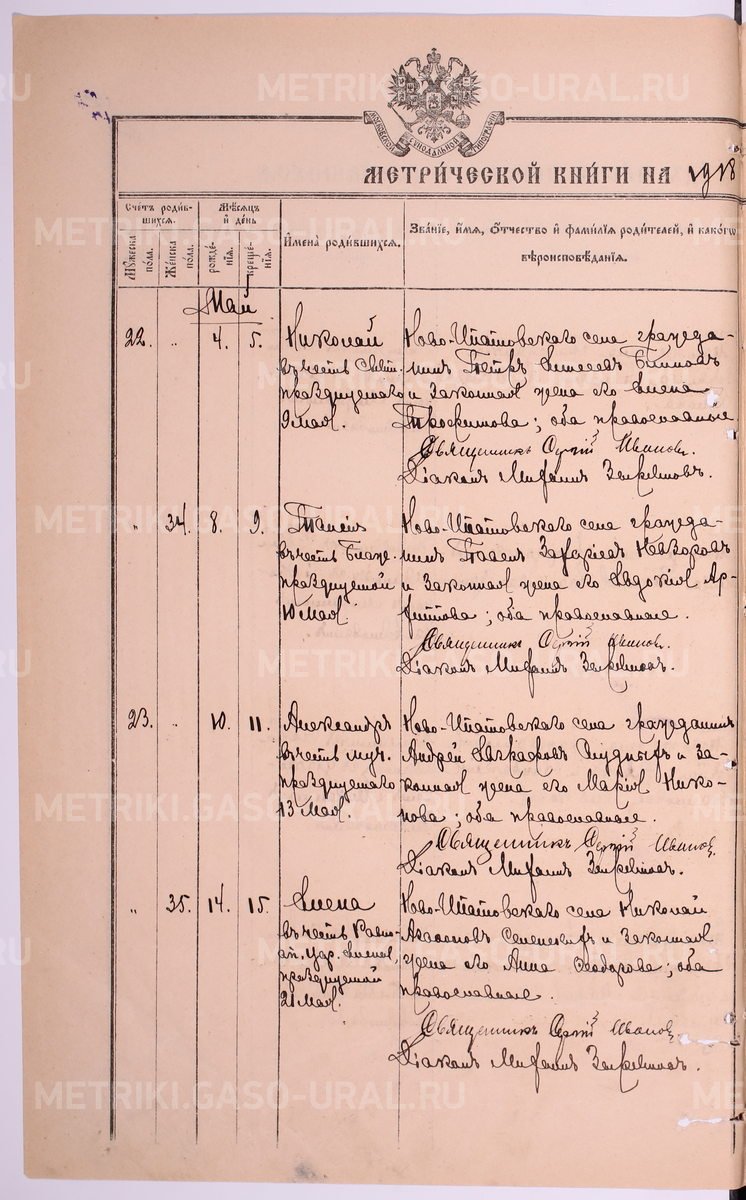 МОСКОВСКОЙ СУНОДАЛЬНОЙ ТИПОГРАФІИ
МЕТРИ́ЧЕСКОЙ КНИ́ГИ НА 1918
Сче́тъ роди́вшихся.
Му́жеска по́ла.
Же́нска по́ла.
Мѣ́сяцъ и̂ день
рожде́нія.
креще́нія.
И̂мена̀ роди́вшихся.
Зва́ніе, и́мя, о́тчество и̂ фами́лія роди́телей, и̂ како́гѡ вѣроисповѣ́данія.
Май
22. „ 4. 5.
Николай
въ честь Свят.
празднуемаго
9 мая.
Ново-Ипатовскаго села гражда-
нинъ Петръ
и законная жена его Елена
Трофимова; оба православные.
Священникъ Сергій Ивановъ.
Діаконъ
„ 34. 8. 9.
Таисія
въ честь Блаж.
празднуемой
10 мая.
Ново-Ипатовскаго села гражда-
нинъ Павелъ Захаріевъ Невзоровъ
и законная жена его Евдокія Ар-
; оба православные.
Священникъ Сергій Ивановъ.
Діаконъ
23. „ 10. 11.
Александръ
въ честь муч.
празднуемаго
13 мая.
Ново-Ипатовскаго села гражданинъ
Андрей и за-
конная жена его Марія Нико-
нова; оба православные.
Священникъ Сергій Ивановъ.
Діаконъ
„ 35. 14. 15.
Елена
въ честь Равно-
ап. цар. Елены,
празднуемой
21 мая.
Ново-Ипатовскаго села Николай
и законная
жена его Анна Ѳеодорова; оба
православные.
Священникъ Сергій Ивановъ.
Діаконъ
METRIKI.GASO-URAL.RU